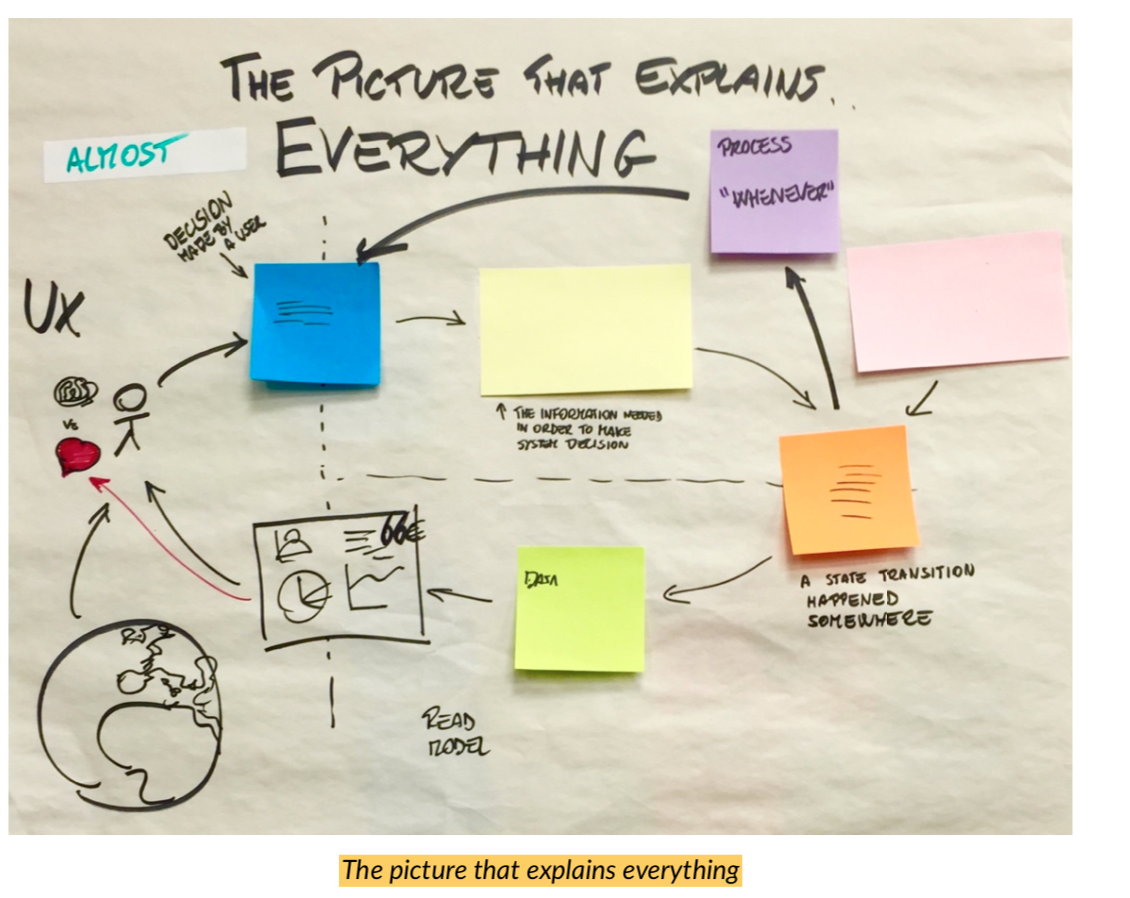 THE PICTURE THAT EXPLAINS..
ALMOST
EVERYTHING
PROCESS
"WHENEVER"
DECISION
MADE BY
A USER
UX
VS
↑ THE INFORMATION NEEDED
IN ORDER TO MAKE
SYSTEM DECISION
66€
DATA
A STATE TRANSITION
HAPPENED
SOMEWHERE
READ
MODEL
The picture that explains everything